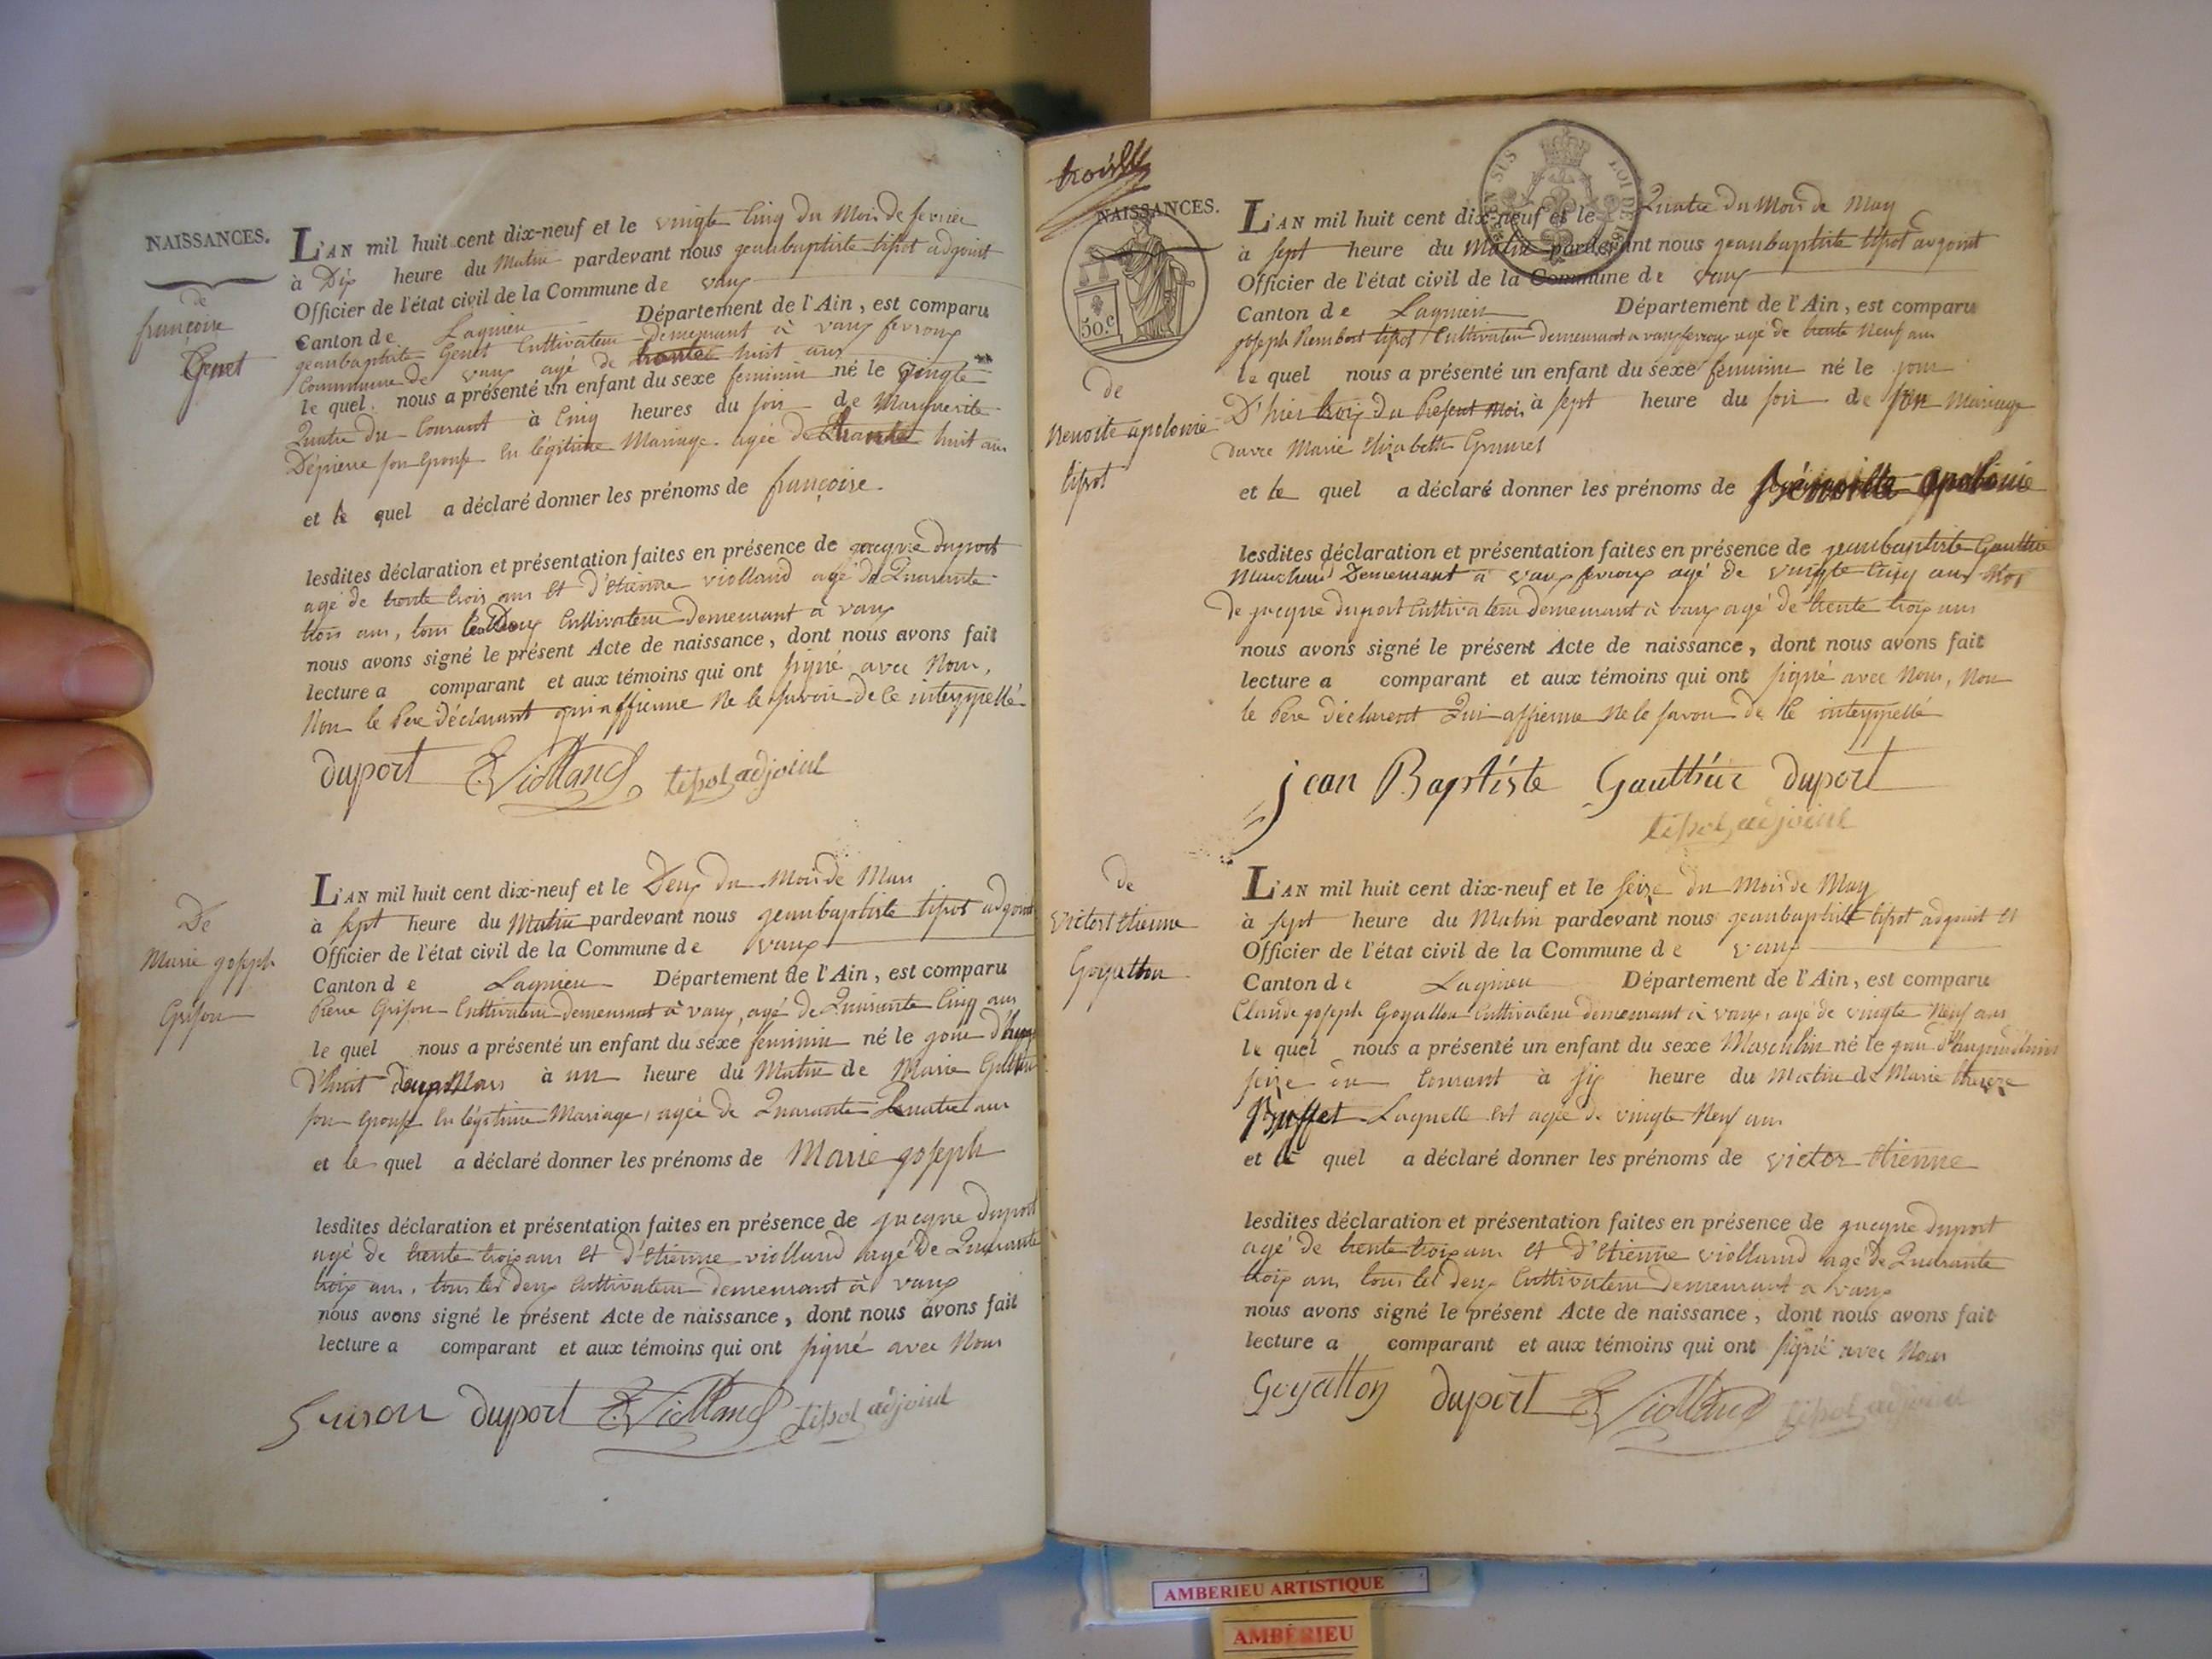 NAISSANCES.
de
françoise
Genet
L'AN mil huit cent dix-neuf et le vingte Cinq du Mois de fevrier
à Dix heure du Matin pardevant nous jeanbaptiste tisot adjoint
Officier de l'état civil de la Commune de vaux
Canton de Lagnieu Département de l'Ain, est comparu
jeanbaptiste Genet Cultivateur demeurant à vaux fevroux
Commune de vaux agé de trente huit ans
le quel nous a présenté un enfant du sexe feminin né le vingte
Quatre du Courant à Cinq heures du soir de Marguerite
Dépierre son Epouse En légitime Mariage agée de trente huit ans
et le quel a déclaré donner les prénoms de françoise.
lesdites déclaration et présentation faites en présence de jacque duport
agé de trente trois ans Et d'Etienne violland agé de Quarante
trois ans, tous les Deux Cultivateur demeurant à vaux
nous avons signé le présent Acte de naissance, dont nous avons fait
lecture a comparant et aux témoins qui ont signé avec Nous,
Non le Pere déclarant qui affirme Ne le savoir de Ce interppellé
duport E Violland tisot adjoint
De
Marie joseph
Grison
L'AN mil huit cent dix-neuf et le Deux du Mois de Mars
à sept heure du Matin pardevant nous jeanbaptiste tisot adjoint
Officier de l'état civil de la Commune de vaux
Canton de Lagnieu Département de l'Ain, est comparu
Pierre Grison Cultivateur demeurant à vaux, agé de Quarante Cinq ans
le quel nous a présenté un enfant du sexe feminin né le jour
d'huit deux Mars à un heure du Matin de Marie
son Epouse En légitime Mariage, agée de Quarante Quatre ans
et le quel a déclaré donner les prénoms de Marie joseph
lesdites déclaration et présentation faites en présence de jacque duport
agé de trente trois ans Et d'Etienne violland agé De Quarante
trois ans, tous les deux Cultivateur demeurant à vaux
nous avons signé le présent Acte de naissance, dont nous avons fait
lecture a comparant et aux témoins qui ont signé avec Nous
Grison duport E Violland tisot adjoint
NAISSANCES.
50.c
de
Benoite apolonie
tisot
L'AN mil huit cent dix-neuf et le Quatre du Mois de May
à sept heure du Matin pardevant nous jeanbaptiste tisot adjoint
Officier de l'état civil de la Commune de vaux
Canton de Lagnieu Département de l'Ain, est comparu
joseph Rembert tisot Cultivateur demeurant a vaux fevroux agé de trente Neuf ans
le quel nous a présenté un enfant du sexe feminin né le jour
D'hier trois du Présent Mois à sept heure du soir de son Mariage
davec Marie Elizabette
et le quel a déclaré donner les prénoms de Bénoitte apolonie
lesdites déclaration et présentation faites en présence de jeanbaptiste Gauttier
Marchand Demeurant à vaux fevroux agé de vingte Cinq ans
De jacque duport Cultivateur demeurant à vaux agé de trente trois ans
nous avons signé le présent Acte de naissance, dont nous avons fait
lecture a comparant et aux témoins qui ont signé avec Nous, Non
le Pere déclarent Qui affirme Ne le savoir de Ce interppellé
jean Baptiste Gauthier duport
tisot adjoint
de
Victor Etienne
Goyatton
L'AN mil huit cent dix-neuf et le seize du Mois de May
à sept heure du Matin pardevant nous jeanbaptiste tisot adjoint
Officier de l'état civil de la Commune de vaux
Canton de Lagnieu Département de l'Ain, est comparu
Claude joseph Goyatton Cultivateur demeurant à vaux, agé de vingte Neuf ans
le quel nous a présenté un enfant du sexe Masculin né le jour d'haujourdhuis
seize du Courant à six heure du Matin de Marie therere
Buffet Laquelle est agée de vingte Neuf ans
et le quel a déclaré donner les prénoms de victor Etienne
lesdites déclaration et présentation faites en présence de jacque duport
agé de trente trois ans Et D'Etienne violland agé De Quarante
trois ans tous les deux Cultivateur demeurant a vaux
nous avons signé le présent Acte de naissance, dont nous avons fait
lecture a comparant et aux témoins qui ont signé avec Nous
Goyatton duport E Violland tisot adjoint
AMBERIEU ARTISTIQUE
AMBÉRIEU